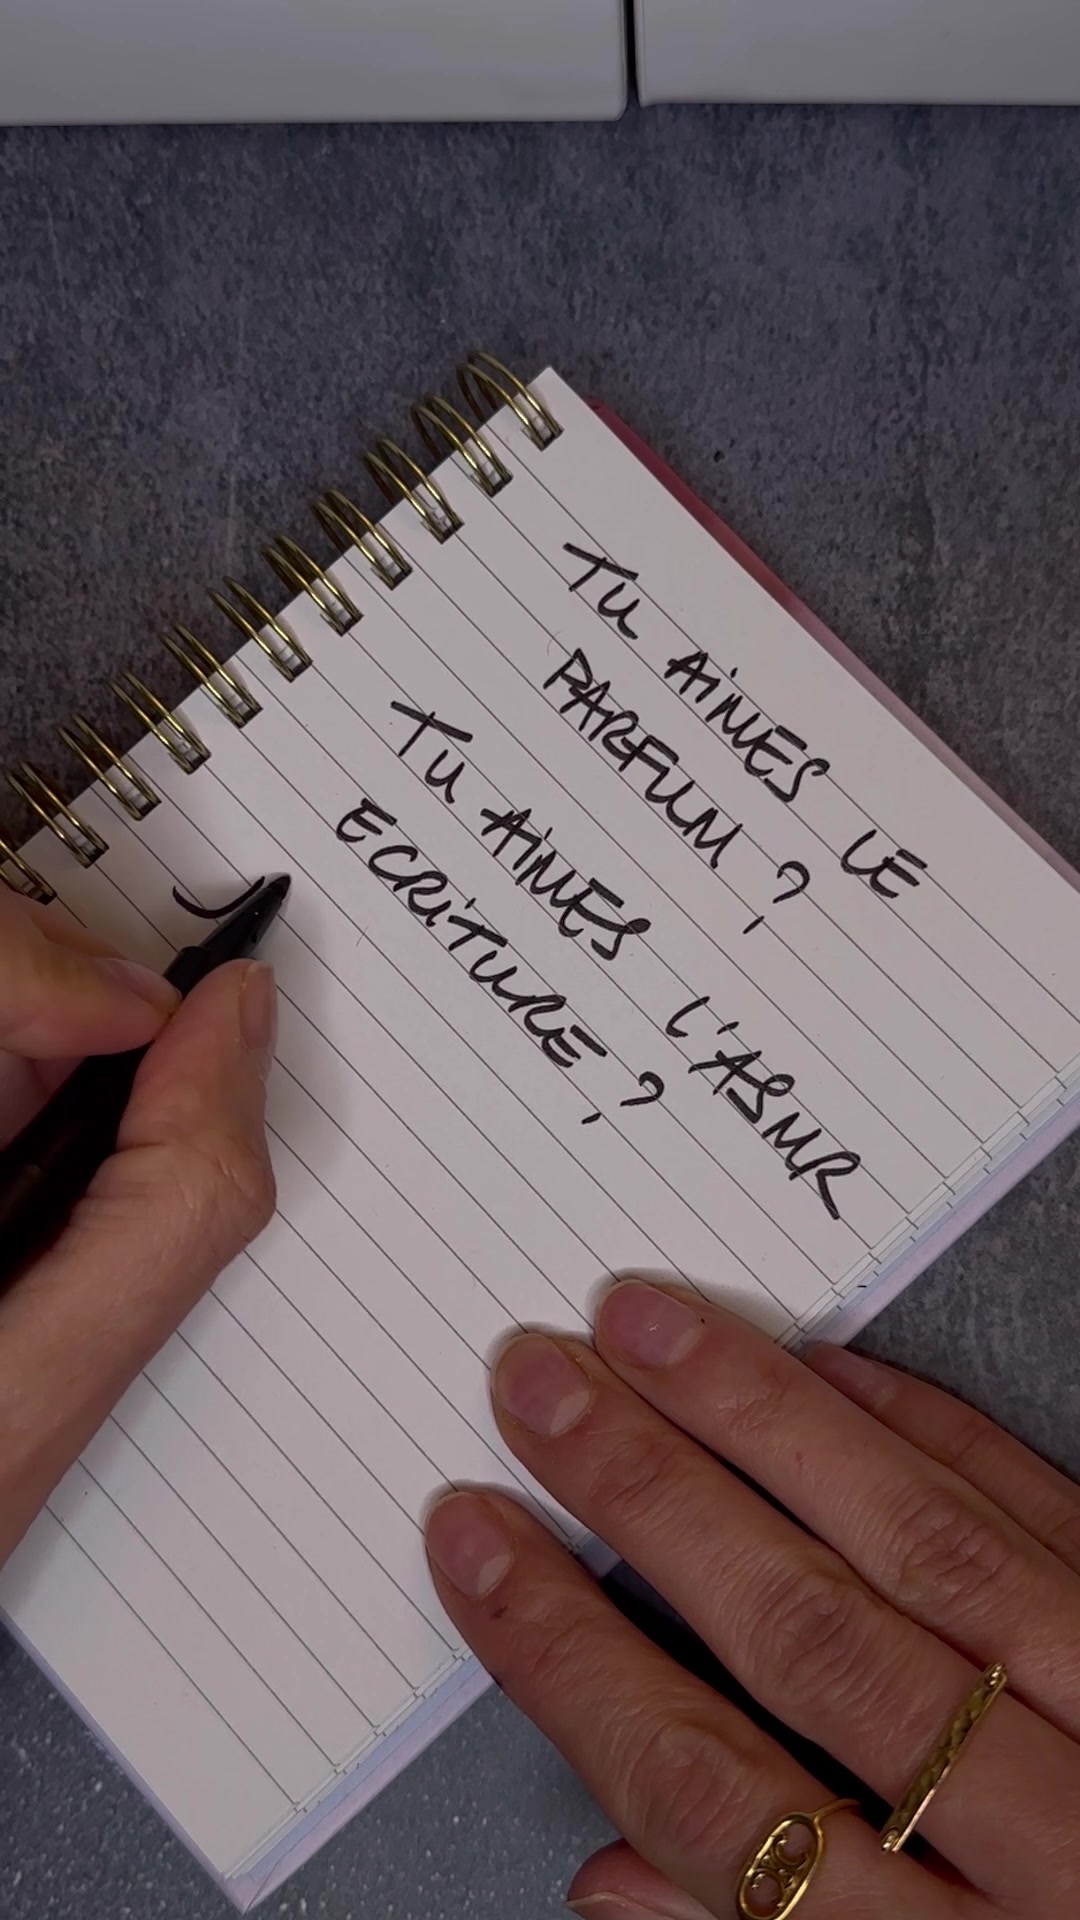 TU AiMES LE
PARFUM ?
TU AiMES L'ASMR
ECRiTURE ?